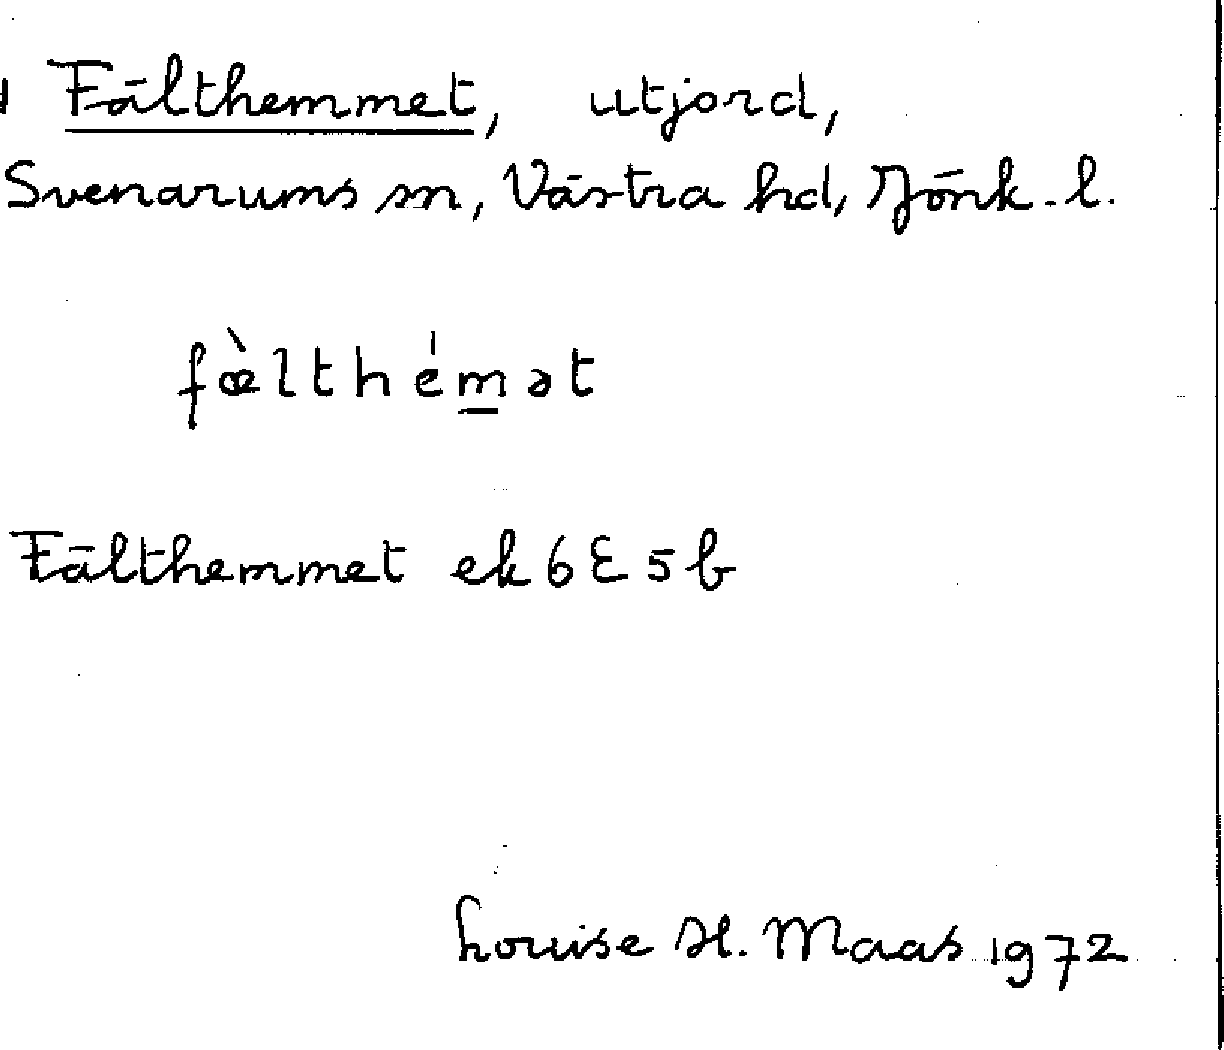 Fälthemmet, utjord,
Svenarums sn, Västra hd, Jönk. l.
fæ̀lthém̲ət
Fälthemmet ek 6E5b
Louise H. Maas 1972